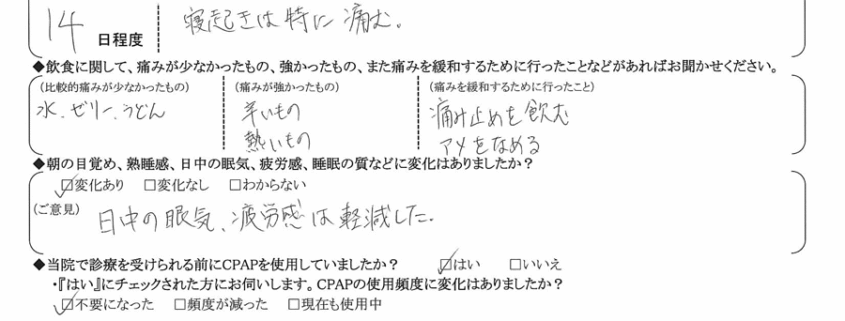 14 日程度 寝起きは特に痛む。
◆飲食に関して、痛みが少なかったもの、強かったもの、また痛みを緩和するために行ったことなどがあればお聞かせください。
(比較的痛みが少なかったもの) (痛みが強かったもの) (痛みを緩和するために行ったこと)
水、ゼリー、うどん 辛いもの 痛み止めを飲む
熱いもの アメをなめる
◆朝の目覚め、熟睡感、日中の眠気、疲労感、睡眠の質などに変化はありましたか?
☑変化あり □変化なし □わからない
(ご意見) 日中の眠気、疲労感は軽減した。
◆当院で診療を受けられる前にCPAPを使用していましたか? ☑はい □いいえ
・『はい』にチェックされた方にお伺いします。CPAPの使用頻度に変化はありましたか?
☑不要になった □頻度が減った □現在も使用中